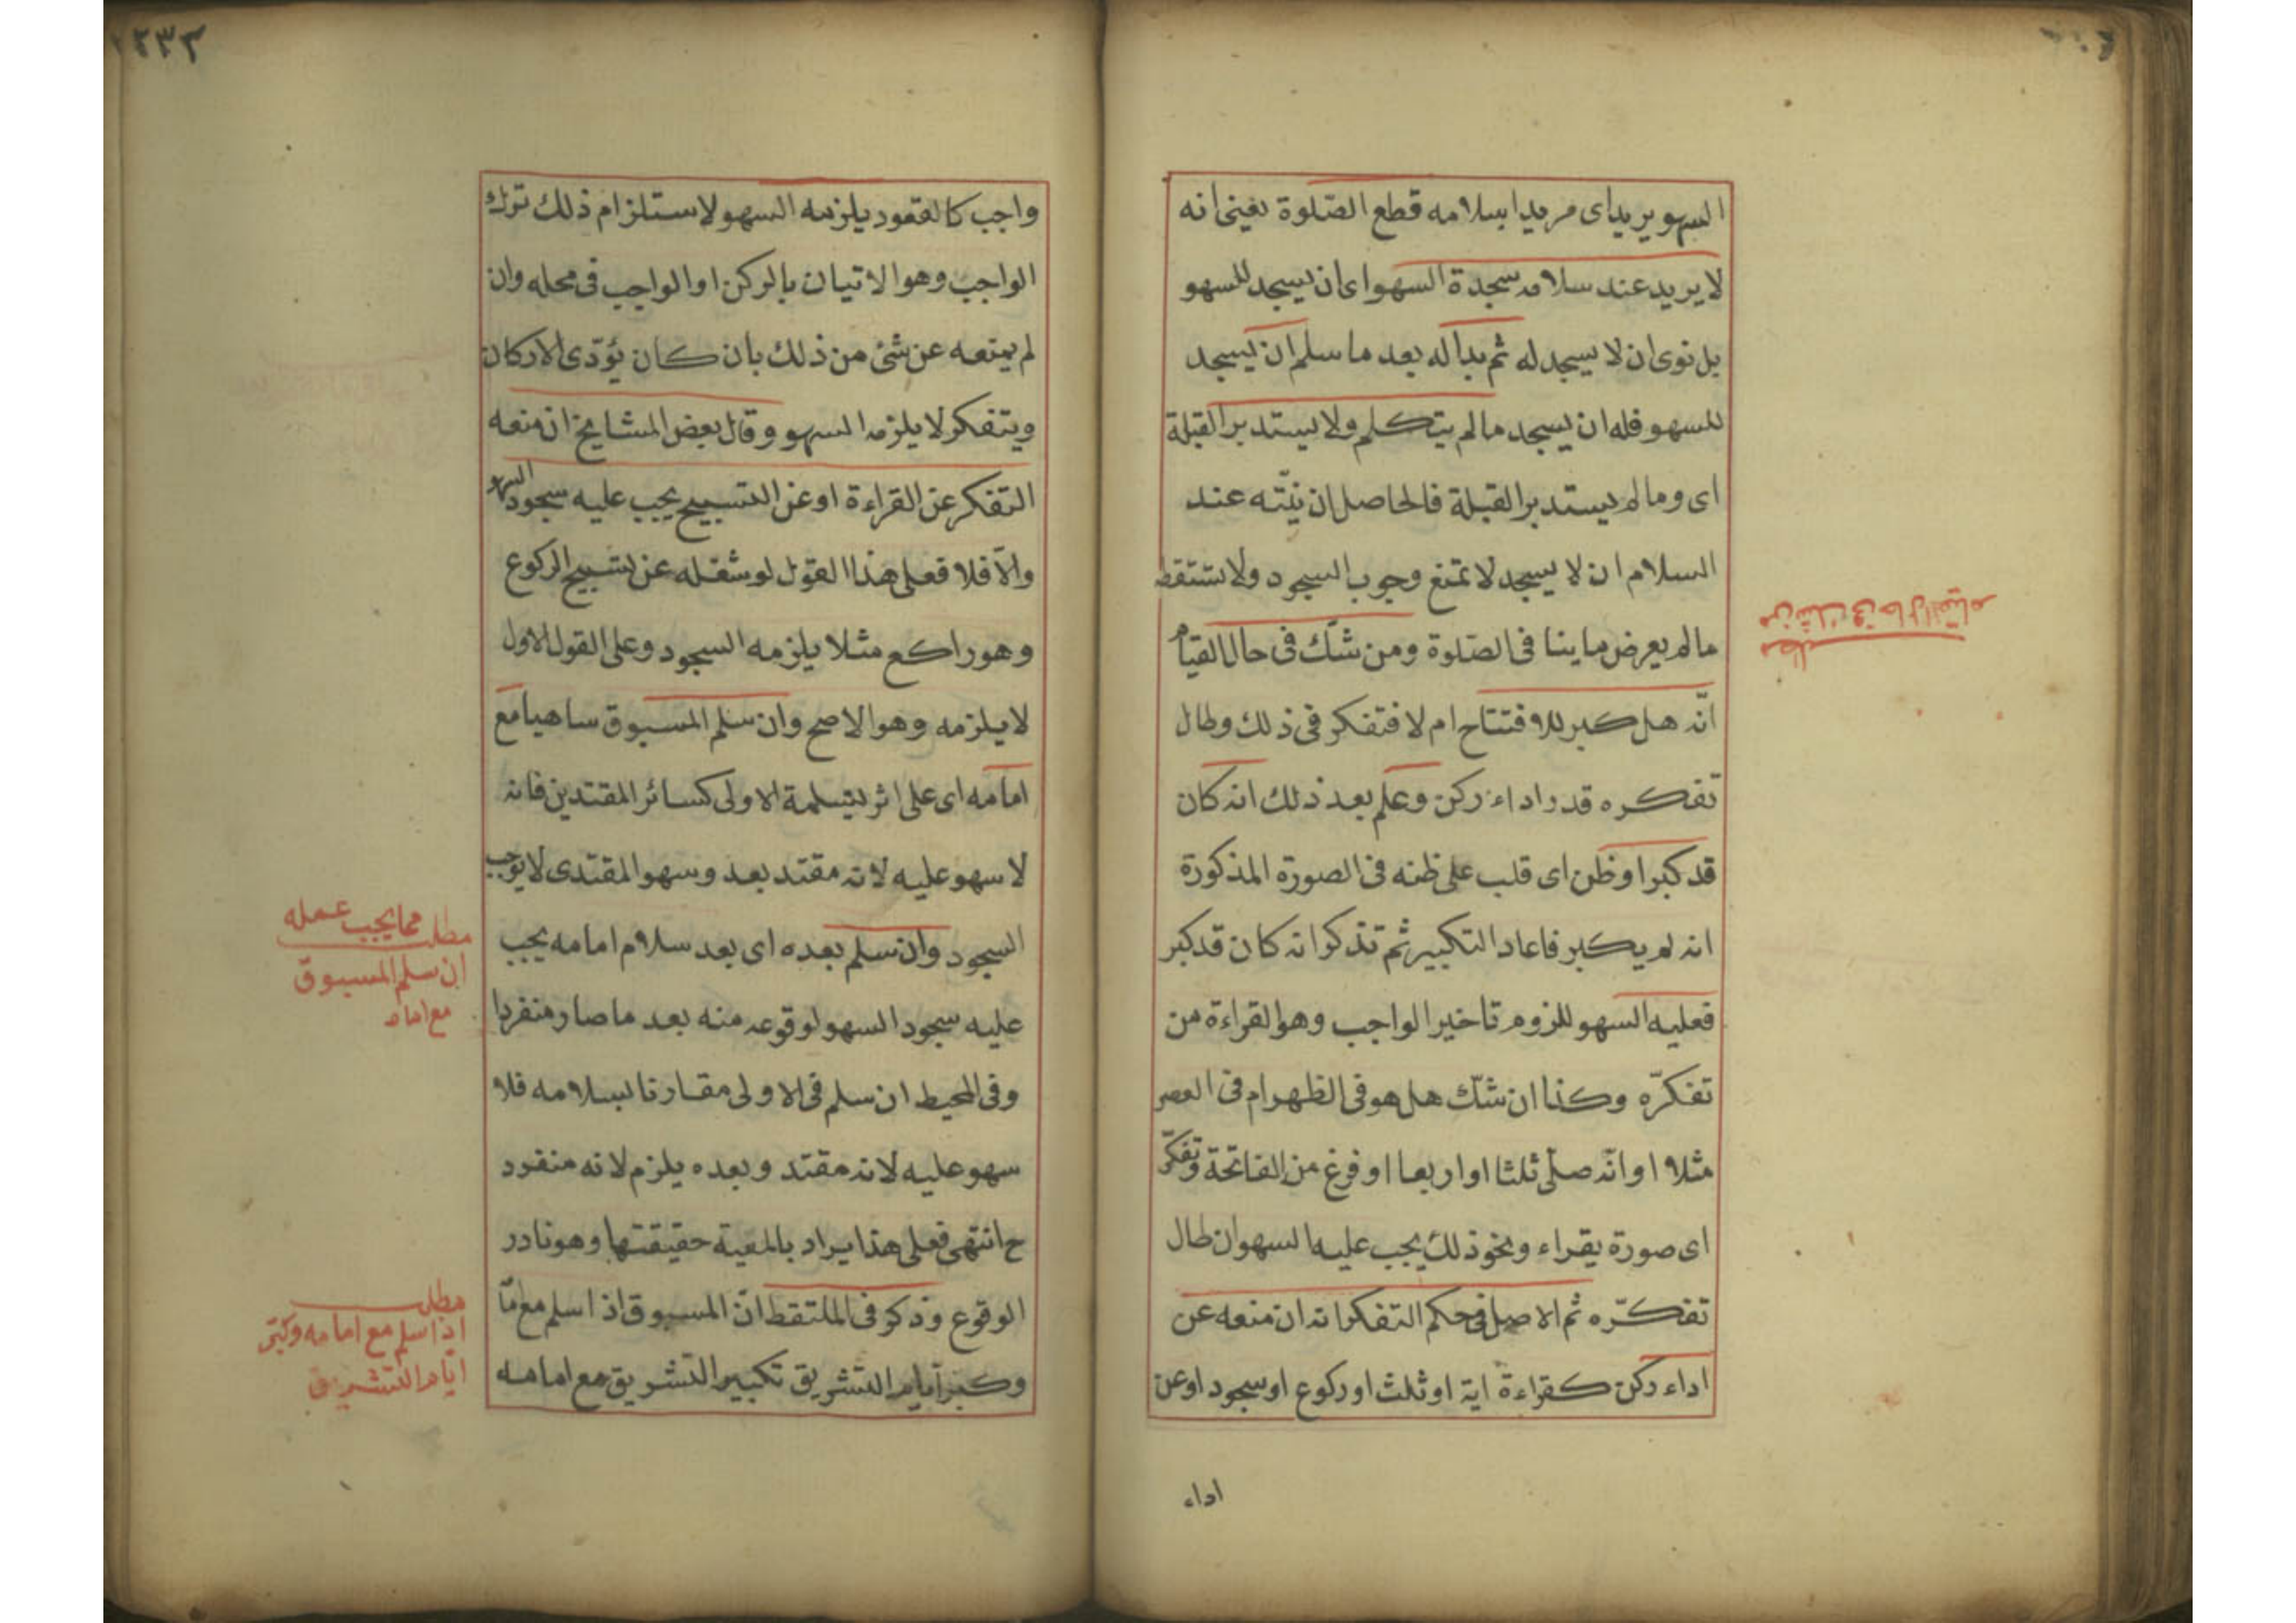 السهو يريد اى مريدا بسلامه قطع الصّلوة يعنى انه
لا يريد عند سلامه سجدة السهو اى ان يسجد للسهو
بل نوى ان لا يسجد له ثم بدا له بعد ما سلم ان يسجد
للسهو فله ان يسجد ما لم يتكلم ولا يستدبر القبلة
اى وما لم يستدبر القبلة فالحاصل ان نيّته عند
السلام ان لا يسجد لا تمنع وجوب السجود ولا تسقط
ما لم يعرض ما ينافى الصّلوة ومن شكّ فى حال القيام
انّه هل كبر للافتتاح ام لا فتفكر فى ذلك وطال
تفكره قدر اداء ركن وعلم بعد ذلك انه كان
قد كبر او ظن اى قلب على ظنه فى الصورة المذكورة
انه لم يكبر فاعاد التكبير ثم تذكر انه كان قد كبر
فعليه السهو للزوم تاخير الواجب وهو القراءة من
تفكرّه وكذا ان شكّ هل هو فى الظهر ام فى العصر
مثلا او انّه صلّى ثلثا او اربعا او فرغ من الفاتحة وتفكرّ
اى صورة يقراء ونحو ذلك يجب عليه السهو ان طال
تفكّره ثم الاصل فى حكم التفكر انه ان منعه عن
اداء ركن كقراءة اية او ثلث او ركوع او سجود او عن
اداء
مطلب
من شك فى حال القيام
٢٣٢
واجب كالقعود يلزمه السهو لاستلزام ذلك ترك
الواجب وهو الاتيان بالركن او الواجب فى محله وان
لم يمنعه عن شئ من ذلك بان كان يؤدّى الاركان
ويتفكر لا يلزمه السهو وقال بعض المشايخ ان منعه
التفكر عن القراءة او عن التسبيح يجب عليه سجود السهو
والّا فلا فعلى هذا القول لو شغله عن تسبيح الركوع
وهو راكع مثلا يلزمه السجود وعلى القول الاول
لا يلزمه وهو الاصح وان سلم المسبوق ساهيا مع
امامه اى على اثر تسليمة الاولى كسائر المقتدين فانه
لا سهو عليه لانه مقتد بعد وسهو المقتدى لا يوجب
السجود وان سلم بعده اى بعد سلام امامه يجب
عليه سجود السهو لوقوعه منه بعد ما صار منفردا
وفى المحيط ان سلم فى الاولى مقارنا لسلامه فلا
سهو عليه لانه مقتد وبعده يلزم لانه منفرد
ح انتهى فعلى هذا يراد بالمعية حقيقتها وهو نادر
الوقوع وذكر فى الملتقط انّ المسبوق اذا سلم مع امّا
وكبر ايام التشريق تكبير التشريق مع امامه
مما يجب عمله
مطلب
ان سلم المسبوق
مع امامه
مطلب
اذا سلم مع امامه وكبّر
ايّام التشريق